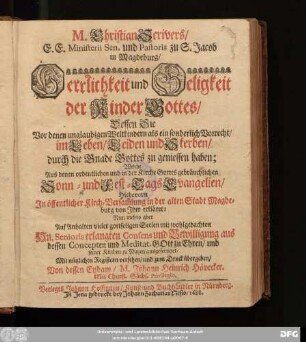 M. Christian Scrivers/
E. E. Ministerii Sen. und Pastoris zu S. Jacob
in Magdeburg/
Herrlichkeit und Seligkeit
der Kinder Gottes/
Dessen Sie
Vor denen unglaubigen Weltkindern als ein sonderlich Vorrecht/
im Leben/ Leiden und Sterben/
durch die Gnade Gottes zu geniessen haben;
Aus denen ordentlichen und in der Kirche Gottes gebräuchlichen
Sonn- und Fest-Tags-Evangelien/
Hiebevorn
In öffentlicher Kirch-Versammlung in der alten Stadt Magdeburg
von Ihm erkläret:
Nun mehro aber
Auf Anhalten vieler gottseligen Seelen mit wohlgedachten
Hn. Senioris erlangten Consens und Bewilligung aus
dessen Concepten und Meditat. GOtt zu Ehren/ und
Mit nützlichen Registern versehen/ und zum Druck übergeben/
Von dessen Eydam/ M. Johann Heinrich Hävecker.
Mit Churfl. Sächs. Privilegio.
Verlegts Johann Hoffmann/ Kunst- und Buchhändler in Nürnberg/
In Jena gedruckt